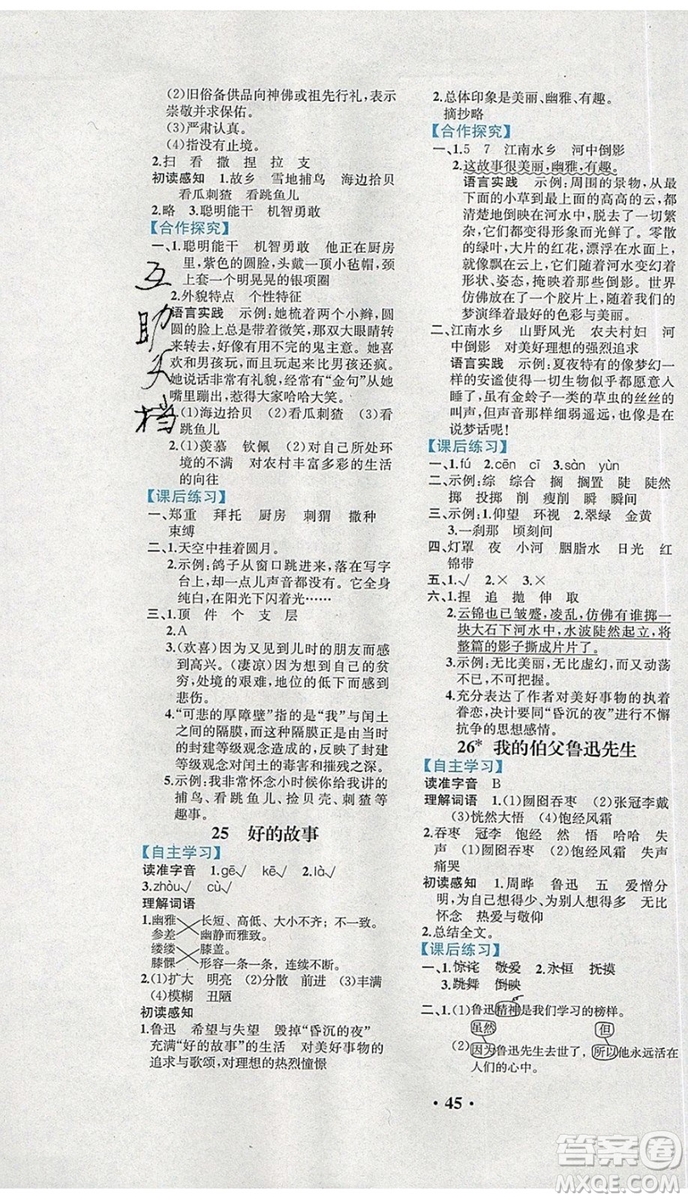 (2)旧俗备供品向神佛或祖先行礼,表示
崇敬并求保佑。
(3)严肃认真。
(4)指没有止境。
2.扫 看 撒 捏 拉 支
初读感知 1.故乡 雪地捕鸟 海边拾贝
看瓜刺猹 看跳鱼儿
2.略 3.聪明能干 机智勇敢
【合作探究】
一、1.聪明能干 机智勇敢 他正在厨房
里,紫色的圆脸,头戴一顶小毡帽,颈
上套一个明晃晃的银项圈
2.外貌特点 个性特征
语言实践 示例:她梳着两个小辫,圆
圆的脸上总是带着微笑,那大眼睛转来
转去,好像有用不完的鬼主意。她喜
欢和男孩玩,而且玩起来比男孩还疯。
她说话非常有礼貌,经常有“金句”从她
嘴里蹦出,惹得大家哈哈大笑。
二、1.(1)海边拾贝 (2)看瓜刺猹 (3)看
跳鱼儿
2.(1)羡慕 钦佩 (2)对自己所处环
境的不满 对农村丰富多彩的生活
的向往
【课后练习】
一、郑重 拜托 厨房 刺猬 撒种
束缚
二、1.天空中挂着圆月。
2.示例:鸽子从窗口跳进来,落在写字
台上,却一点儿声音都没有。它全身
纯白,在阳光下闪着光……
三、1.顶 件 个 支 层
2.A
3.(欢喜)因为见到儿时的朋友而感
到高兴。(凄凉)因为感到生活的贫
穷,处境的艰难,地位的低下而感到
悲伤。
4.“可悲的厚障壁”指的是“我”与闰土
之间的隔膜,造成这种隔膜的是当时
的封建等级观念,闰土深受封建思想
和封建等级观念的毒害和摧残。
5.示例:我会怀念小时候你给我讲的
捕鸟、看跳鱼儿、捡贝壳、刺猹等
趣事。
25 好的故事
【自主学习】
读准字音 1.gē√ ɡé 2.là√
3.zhòu√ cù√
理解词语
1.幽雅 长短、高低、大小不齐;不一致。
参差 幽静而雅致。
缕缕 膝盖。
膝髁 形容一条一条,连续不断。
2.(1)扩大 明亮 (2)分散 (3)丰满
(4)模糊 丑陋
初读感知
1.鲁迅 希望与失望 毁掉“昏沉的夜”
充满“好的故事”的生活 对美好事物的
追求与歌颂,对理想的热烈憧憬
2.总体印象是美丽、幽雅、有趣。
摘抄略
【合作探究】
一、1.5 7 江南水乡 河中倒影
2.这故事很美丽,幽雅,有趣。
语言实践 示例:周围的景物,从最
下面的小草到最上面的高高的云,都
清楚地倒映在河水中,一切又好似
变了个样子,显得光彩夺目。零零散
散的绿叶,大片的红花,漂浮在水面
上,就像飘在云中,随着河水变幻着
形状、姿态,掩映着美丽的色彩。世
界仿佛放进了一个大大的梦中,而
梦演绎着最好的色彩与万物。
二、江南水乡 山野风光 农夫村妇 河
中倒影 对美好理想的强烈追求
语言实践 示例:夏夜特有的像梦幻
一样的安谧笼罩着一切,甚至那些彻
夜不眠的昆虫,似乎也都不愿意再歌
唱了,就在金铃子一个劲儿丝丝丝的
叫声中,那声音都那样细弱遥远,也像在
说梦话呢!
【课后练习】
一、1.fú 2.cēn cī 3.sàn yùn
二、示例:综 综合 搁 搁置 陡 陡然
掷 投掷 削 瘦削 瞬 瞬间
三、示例:1.仰望 环视 2.翠绿 金黄
3.一刹那 顷刻间
四、灯罩 夜 小河 胭脂水 日光 红
锦带
五、1.√ 2.× 3.√
六、1.捏 追 抛 伸 取
2.云锦也已皱蹙,凌乱,仿佛有谁掷一
块大石下河水中,水波陡然起立,将
整篇的影子撕成片片了。
3.示例:无比美丽,无比虚幻,而且动荡
不已,不可把握。
4.充分表达了作者对美好事物的执着
眷恋,决计要同“昏沉的夜”进行不懈
抗争的思想感情。
26* 我的伯父鲁迅先生
【自主学习】
读准字音 B
理解词语 1.(1)囫囵吞枣 (2)张冠李戴
(3)恍然大悟 (4)饱经风霜
2.吞枣 冠李 饱经 然大 的哭 失声
(1)囫囵吞枣 (2)饱经风霜 (3)失声
痛哭
初读感知 1.周晔 鲁迅 五 爱憎分
明,为自己想得少,为别人想得多 无比
怀念 热爱与敬仰
2.总结全文。
【课后练习】
一、1.惊诧 敬爱 2.永恒 抚摸
3.跳舞 倒映
二、1.(1)鲁迅精神是我们学习的榜样。
虽然 但
(2)因为鲁迅先生去世了,所以他永远活在
人们的心中。
· 45 ·
互助文档
答案圈
MXQE.COM